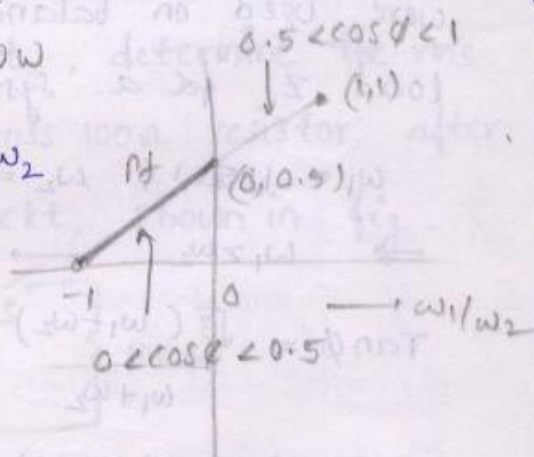 0.5 < cos ϕ < 1
ow
(1,1)
ω2
Pf
(0, 0.5)
-1
0
→ ω1/ω2
0 < cos ϕ < 0.5